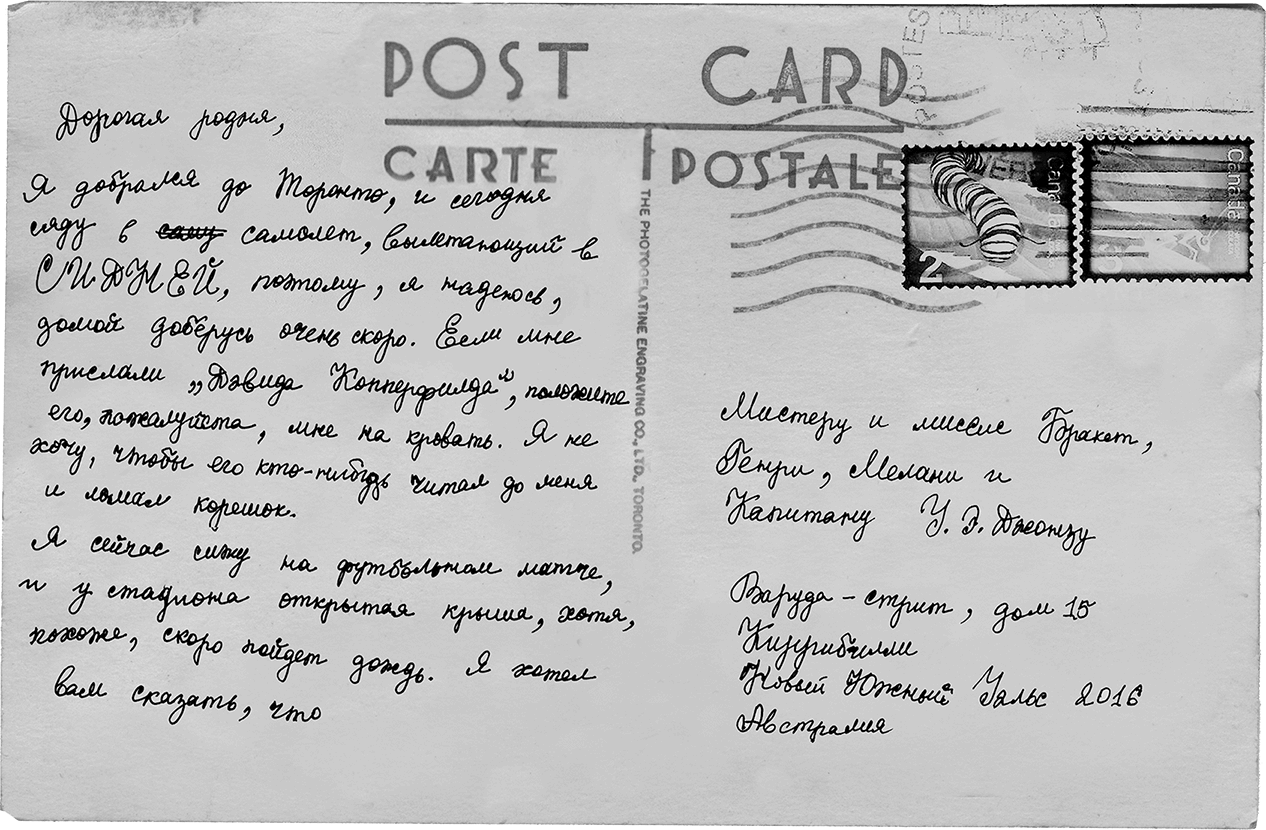 POST CARD
CARTE POSTALE
THE PHOTOGELATINE ENGRAVING CO., LTD., TORONTO.
POSTES
Canada
2
Canada
Дорогая родня,
Я добрался до Торонто, и сегодня
сяду в самолет, вылетающий в
СИДНЕЙ, поэтому, я надеюсь,
домой доберусь очень скоро. Если мне
прислали „Дэвида Копперфилда“, положите
его, пожалуйста, мне на кровать. Я не
хочу, чтобы его кто-нибудь читал до меня
и ломал корешок.
Я сейчас сижу на футбольном матче,
и у стадиона открытая крыша, хотя,
похоже, скоро пойдет дождь. Я хотел
вам сказать, что
Мистеру и миссис Бракет,
Генри, Мелани и
Капитану У. Э. Джонзу
Варуда-стрит, дом 15
Кирибилли
Новый Южный Уэльс 2016
Австралия